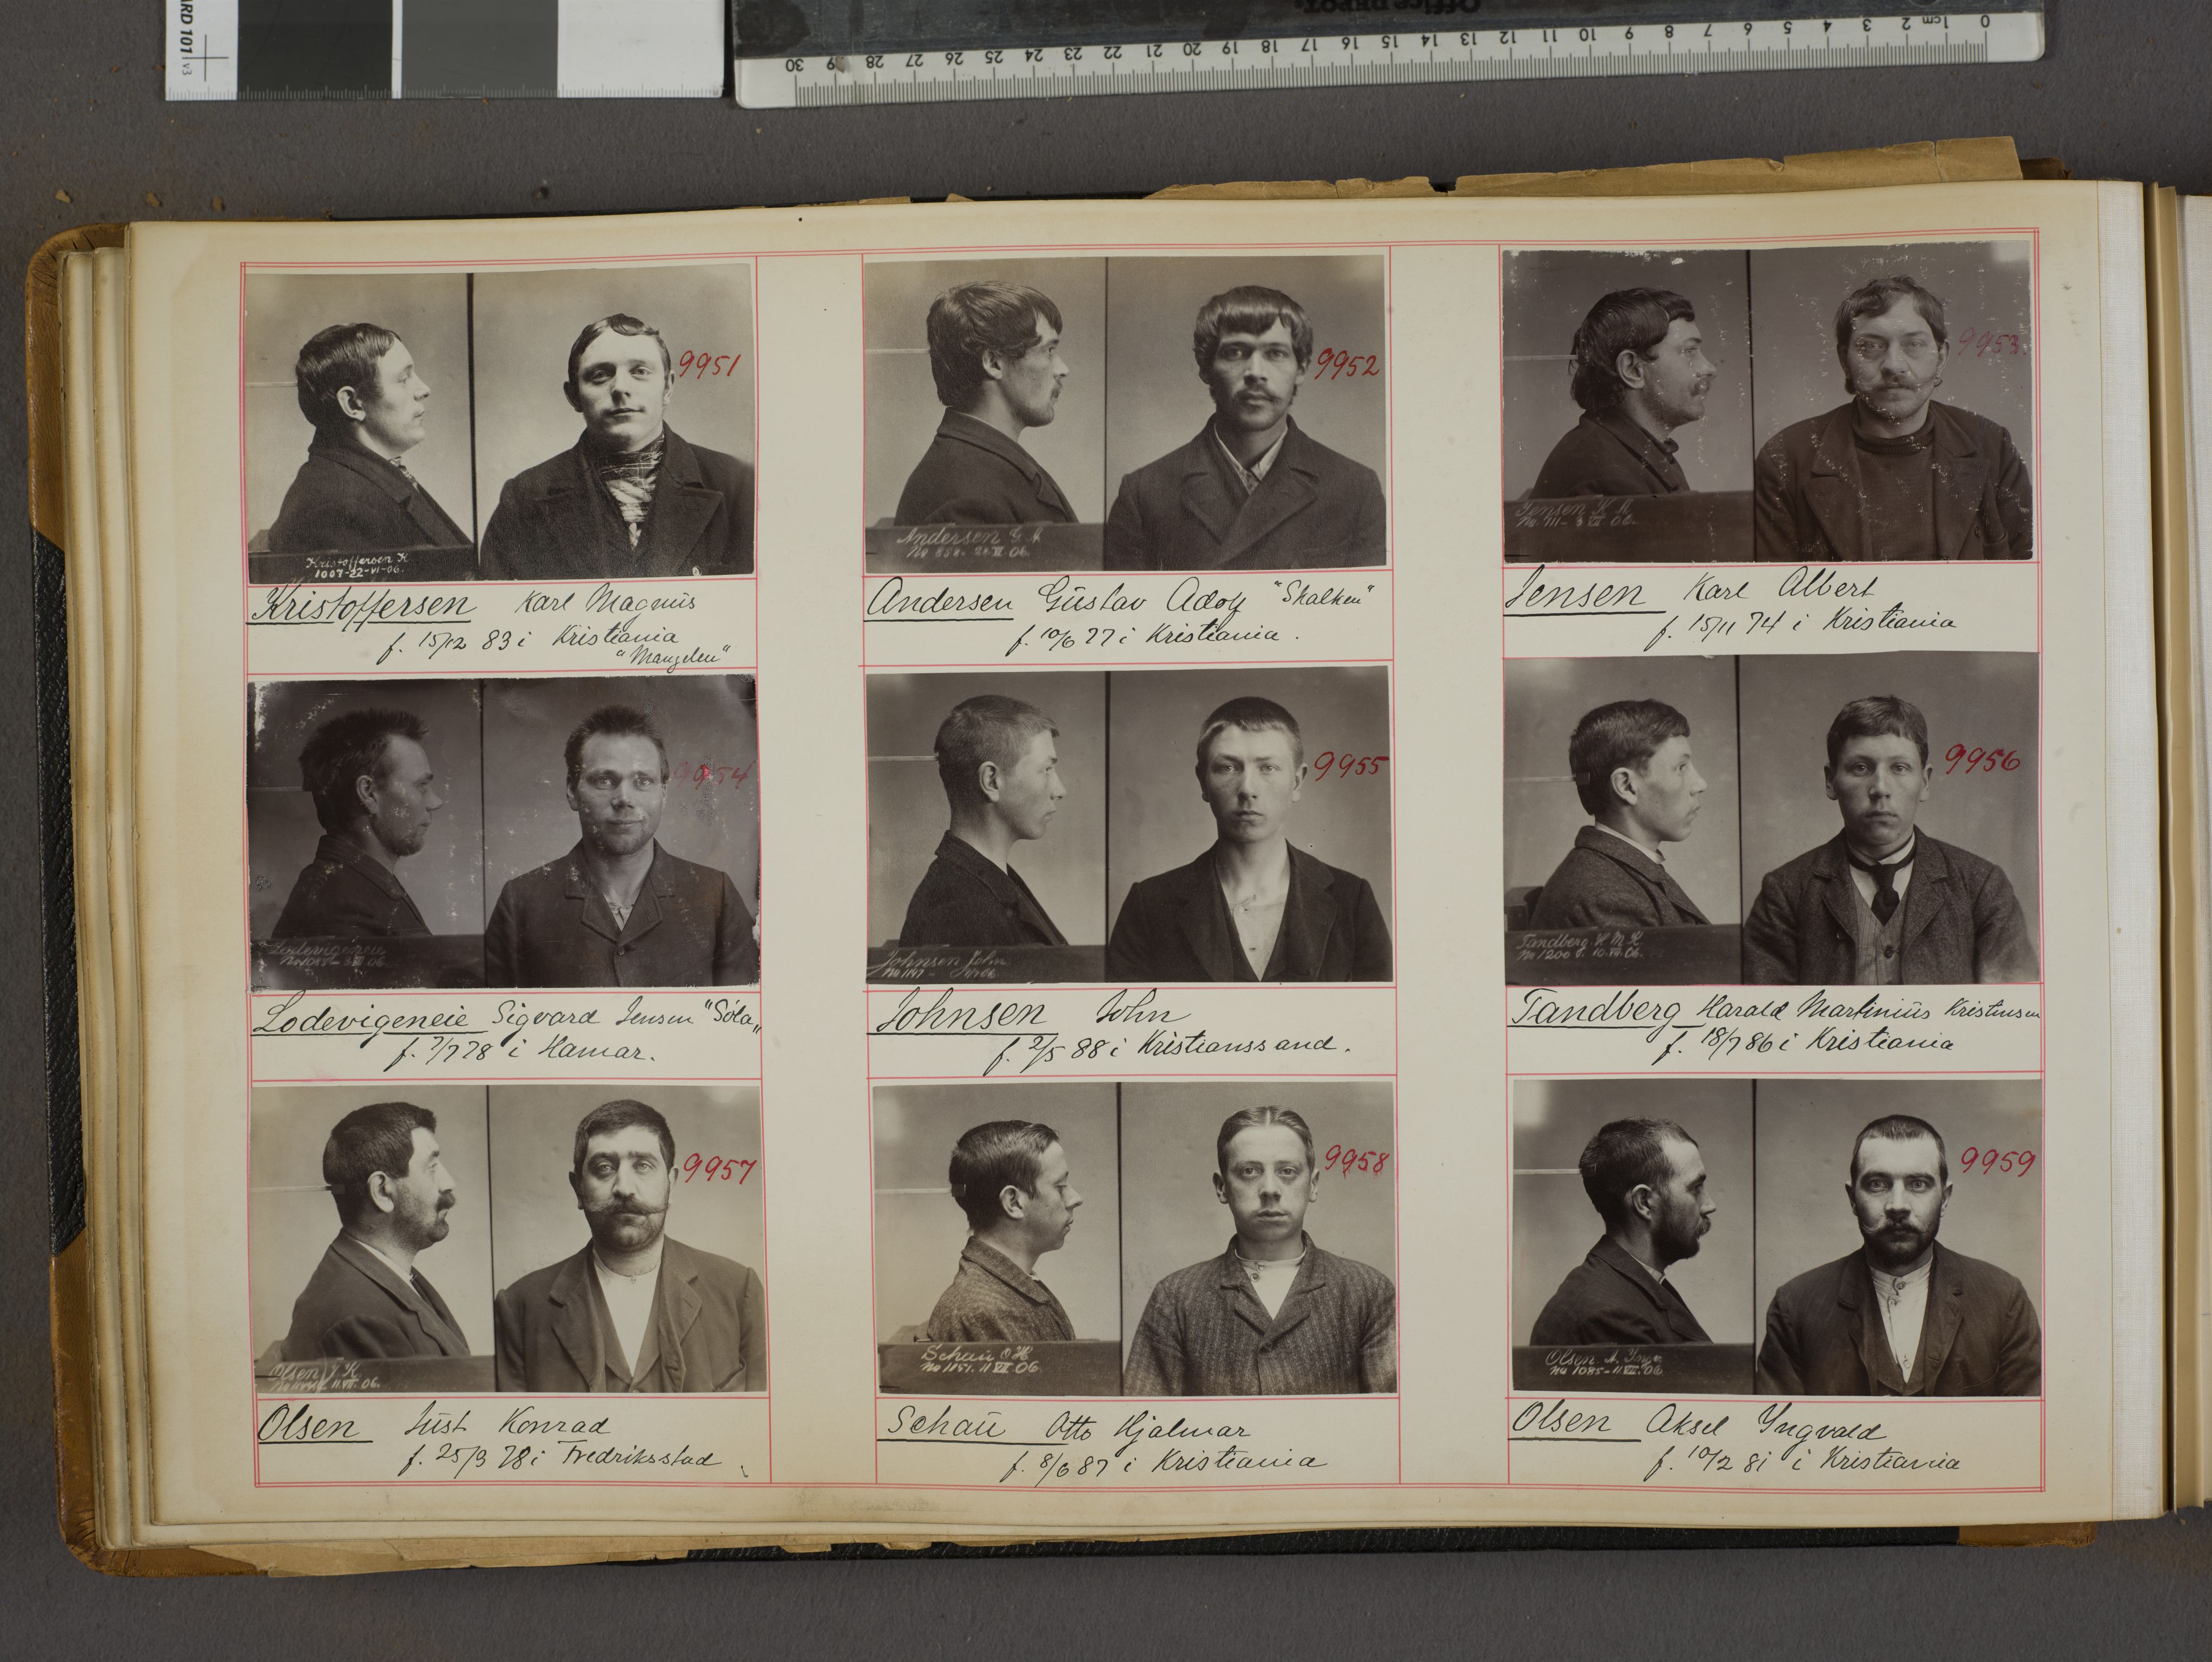 ARD 101 v3
Office DEPOT.
0 1cm 2 3 4 5 6 7 8 9 10 11 12 13 14 15 16 17 18 19 20 21 22 23 24 25 26 27 28 29 30
9951
Kristoffersen K
1007-22-VI-06.
Kristoffersen Karl Magnus
f. 15/12 83 i Kristiania
"Mangelen"
9952
Andersen G A
06.
Andersen Gustav Adolf "Skalken"
f. 10/6 77 i Kristiania.
9953
Jensen K A
06.
Jensen Karl Albert
f. 15/11 74 i Kristiania
9954
Lodevigeneie
06
Lodevigeneie Sigvard Jensen "Sóla„
f. 7/7 78 i Hamar.
9955
Johnsen John
Johnsen John
f. 2/5 88 i Kristianssand.
9956
Tandberg H M K
No 1200 10. VII. 06.
Tandberg Harald Martinius Kristinsen
f. 18/7 86 i Kristiania
9957
Olsen J K
11 VII. 06.
Olsen Just Konrad
f. 25/3 78 i Fredriksstad
9958
Schau O H
No 1151. 11 VII 06
Schau Otto Hjalmar
f. 8/6 87 i Kristiania
9959
Olsen A. Yngv.
No 1085-11 VII. 06
Olsen Aksel Yngvald
f. 10/2 81 i Kristiania